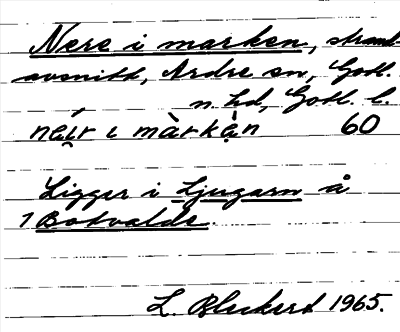 Nere i marken, strand-
avsnitt, Ardre sn, Gotl.
n. hd, Gotl. l.
i màrkạ̀n 60
Ligger i Ljugarn å
1 Botvalde.
L. Bleckert 1965.